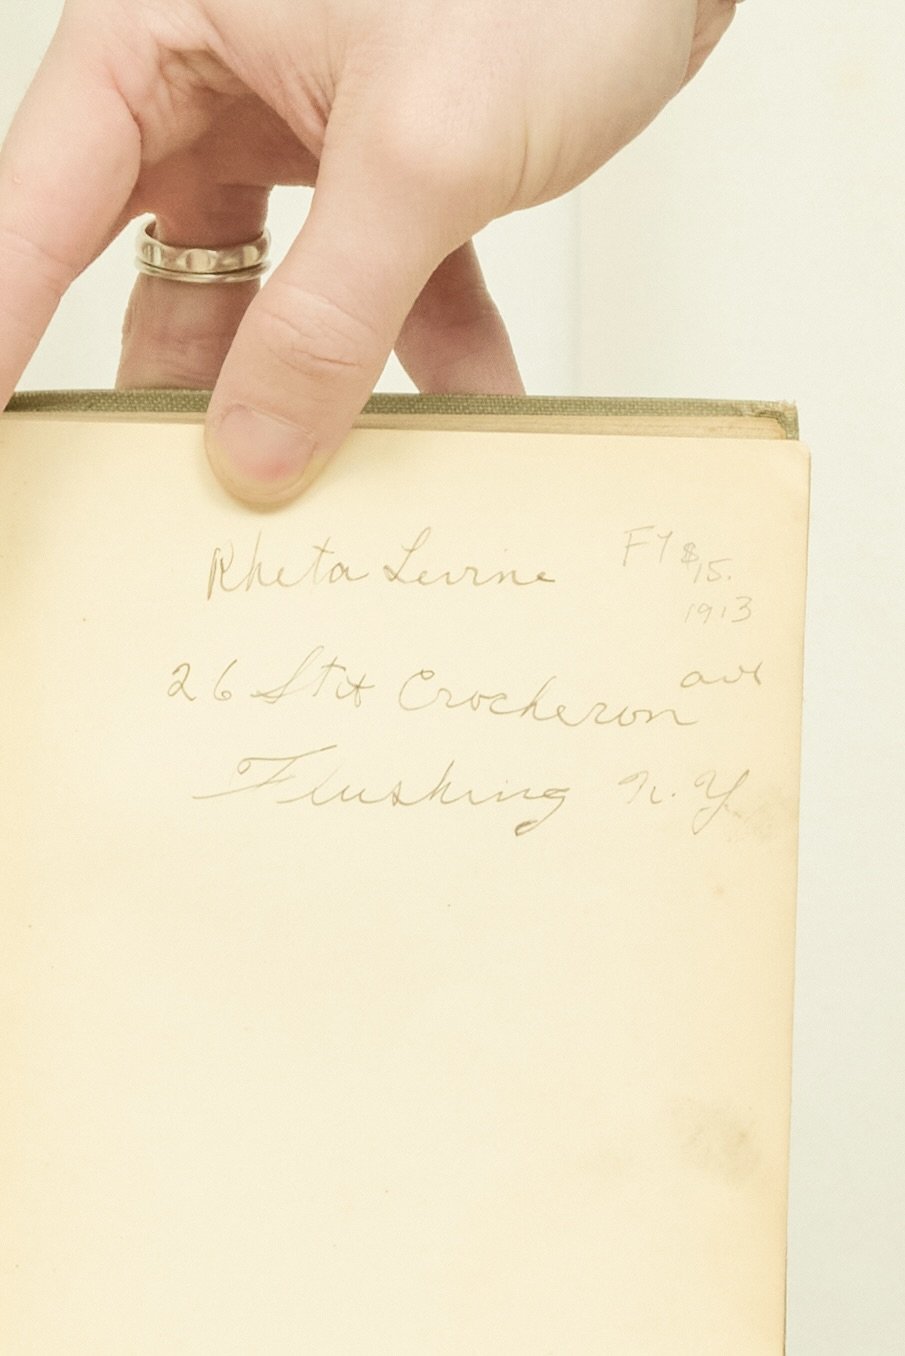 Rheta Levine
FY $15.
1913
26 St & Crocheron ave
Flushing N.Y